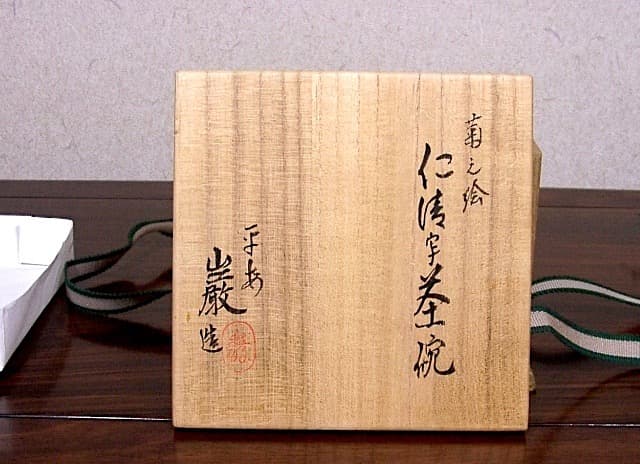 菊之絵
仁清写茶碗
平安
巌造